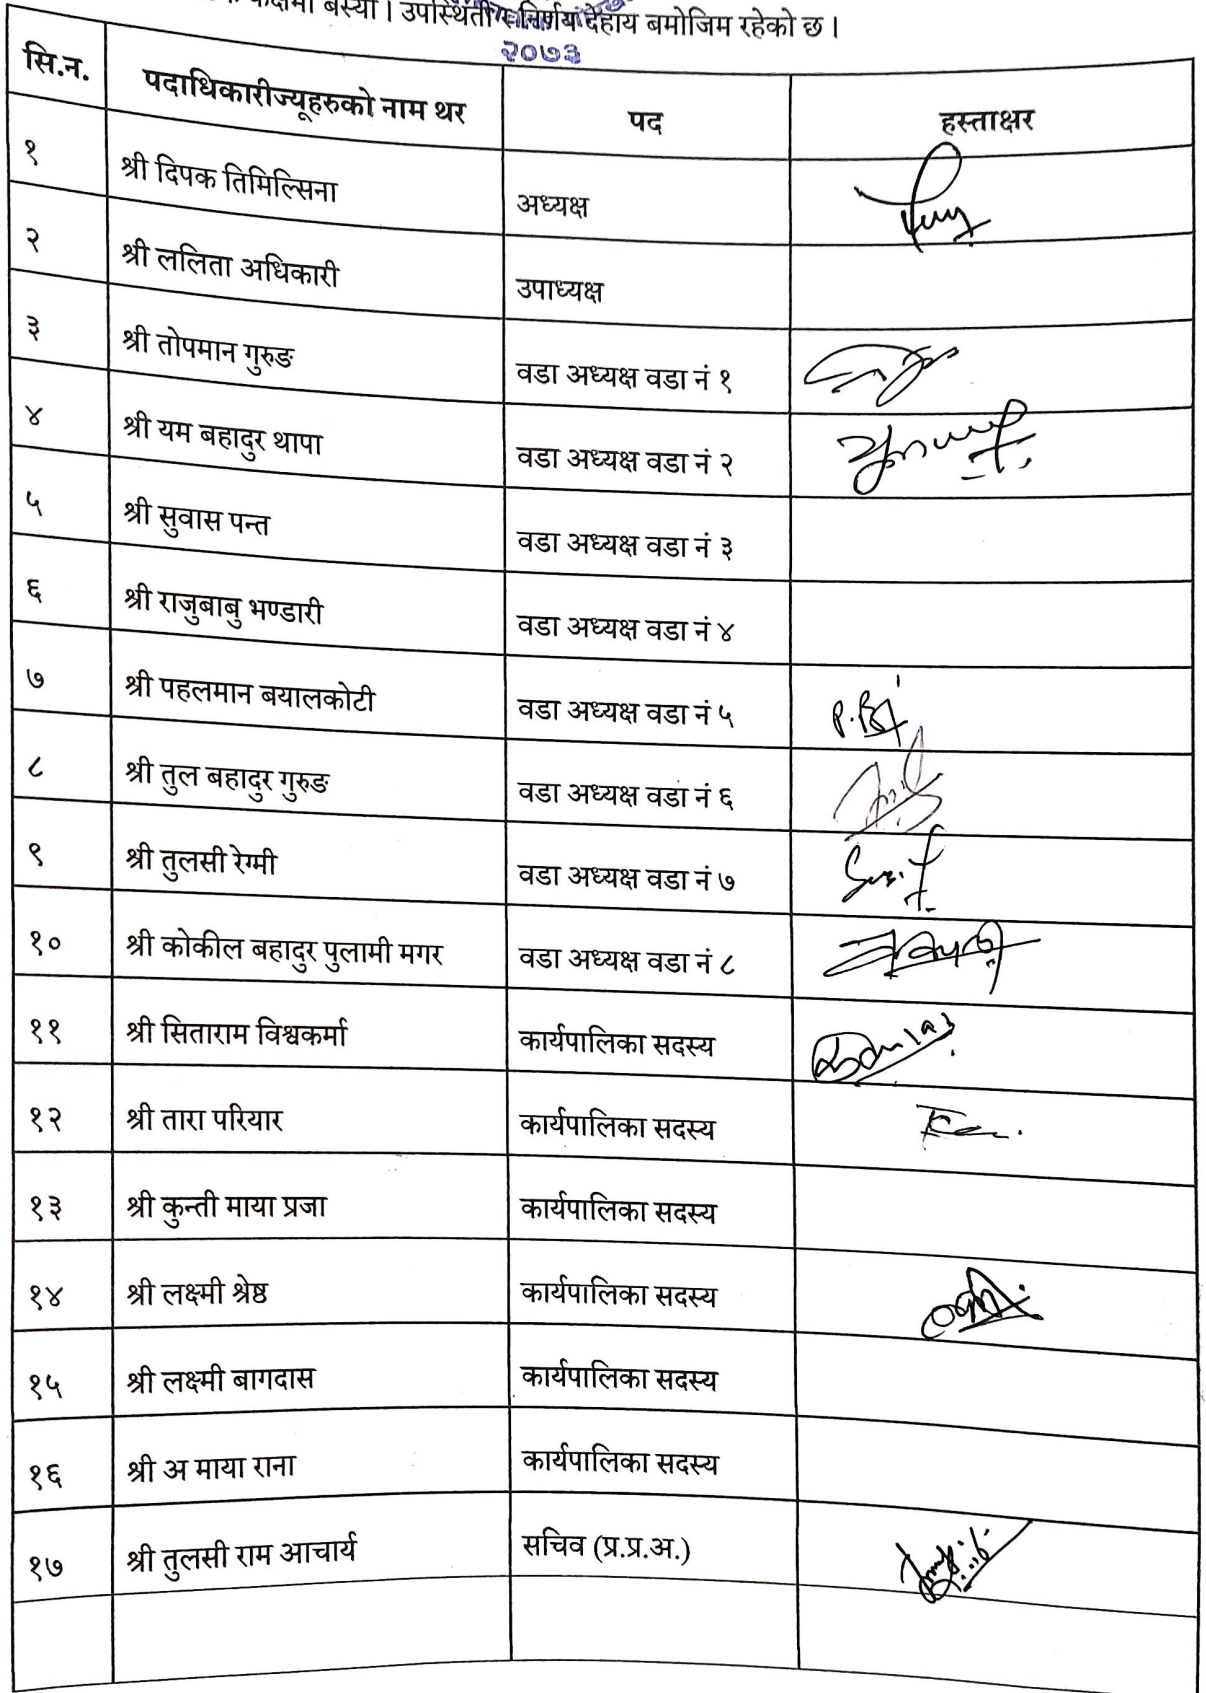 कक्षमा बस्यो । उपस्थिती र निर्णय देहाय बमोजिम रहेको छ ।
२०७३
सि.न. पदाधिकारीज्यूहरुको नाम थर पद हस्ताक्षर
१ श्री दिपक तिमिल्सिना अध्यक्ष
२ श्री ललिता अधिकारी उपाध्यक्ष
३ श्री तोपमान गुरुङ वडा अध्यक्ष वडा नं १
४ श्री यम बहादुर थापा वडा अध्यक्ष वडा नं २
५ श्री सुवास पन्त वडा अध्यक्ष वडा नं ३
६ श्री राजुबाबु भण्डारी वडा अध्यक्ष वडा नं ४
७ श्री पहलमान बयालकोटी वडा अध्यक्ष वडा नं ५
८ श्री तुल बहादुर गुरुङ वडा अध्यक्ष वडा नं ६
९ श्री तुलसी रेग्मी वडा अध्यक्ष वडा नं ७
१० श्री कोकील बहादुर पुलामी मगर वडा अध्यक्ष वडा नं ८
११ श्री सिताराम विश्वकर्मा कार्यपालिका सदस्य
१२ श्री तारा परियार कार्यपालिका सदस्य
१३ श्री कुन्ती माया प्रजा कार्यपालिका सदस्य
१४ श्री लक्ष्मी श्रेष्ठ कार्यपालिका सदस्य
१५ श्री लक्ष्मी बागदास कार्यपालिका सदस्य
१६ श्री अ माया राना कार्यपालिका सदस्य
१७ श्री तुलसी राम आचार्य सचिव (प्र.प्र.अ.)